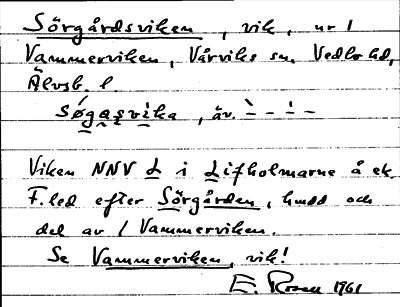 Sörgårdsviken, vik, ur 1
Vammerviken, Vårviks sn, Vedbo hd,
Älvsb. l.
Søgasvika, äv. ` – – ' – –
Viken NNV L i Lifholmarne å ek.
F.led efter Sörgården, hmd och
del av 1 Vammerviken.
Se Vammerviken, vik!
E. Rosen 1961